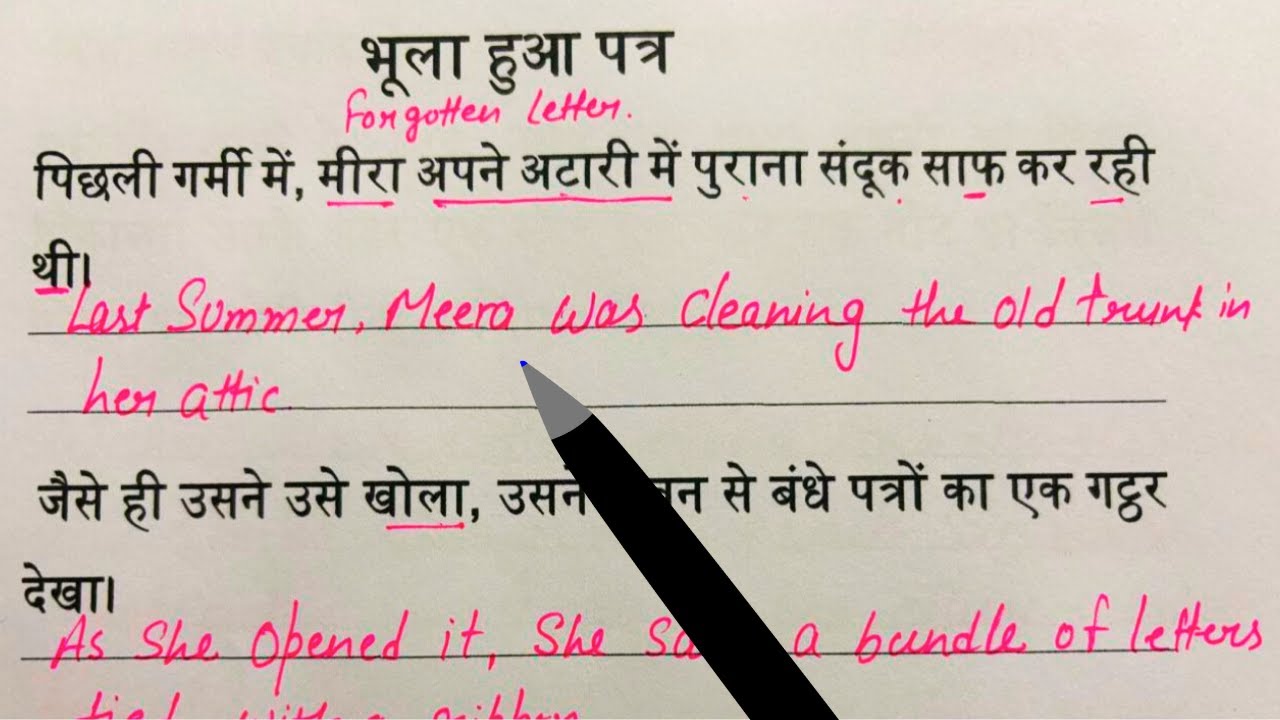 भूला हुआ पत्र
Forgotten Letter.
पिछली गर्मी में, मीरा अपने अटारी में पुराना संदूक साफ कर रही
थी।
Last Summer, Meera was Cleaning the old trunk in
her attic.
जैसे ही उसने उसे खोला, उसने से बंधे पत्रों का एक गट्ठर
देखा।
As She Opened it, She a bundle of letters